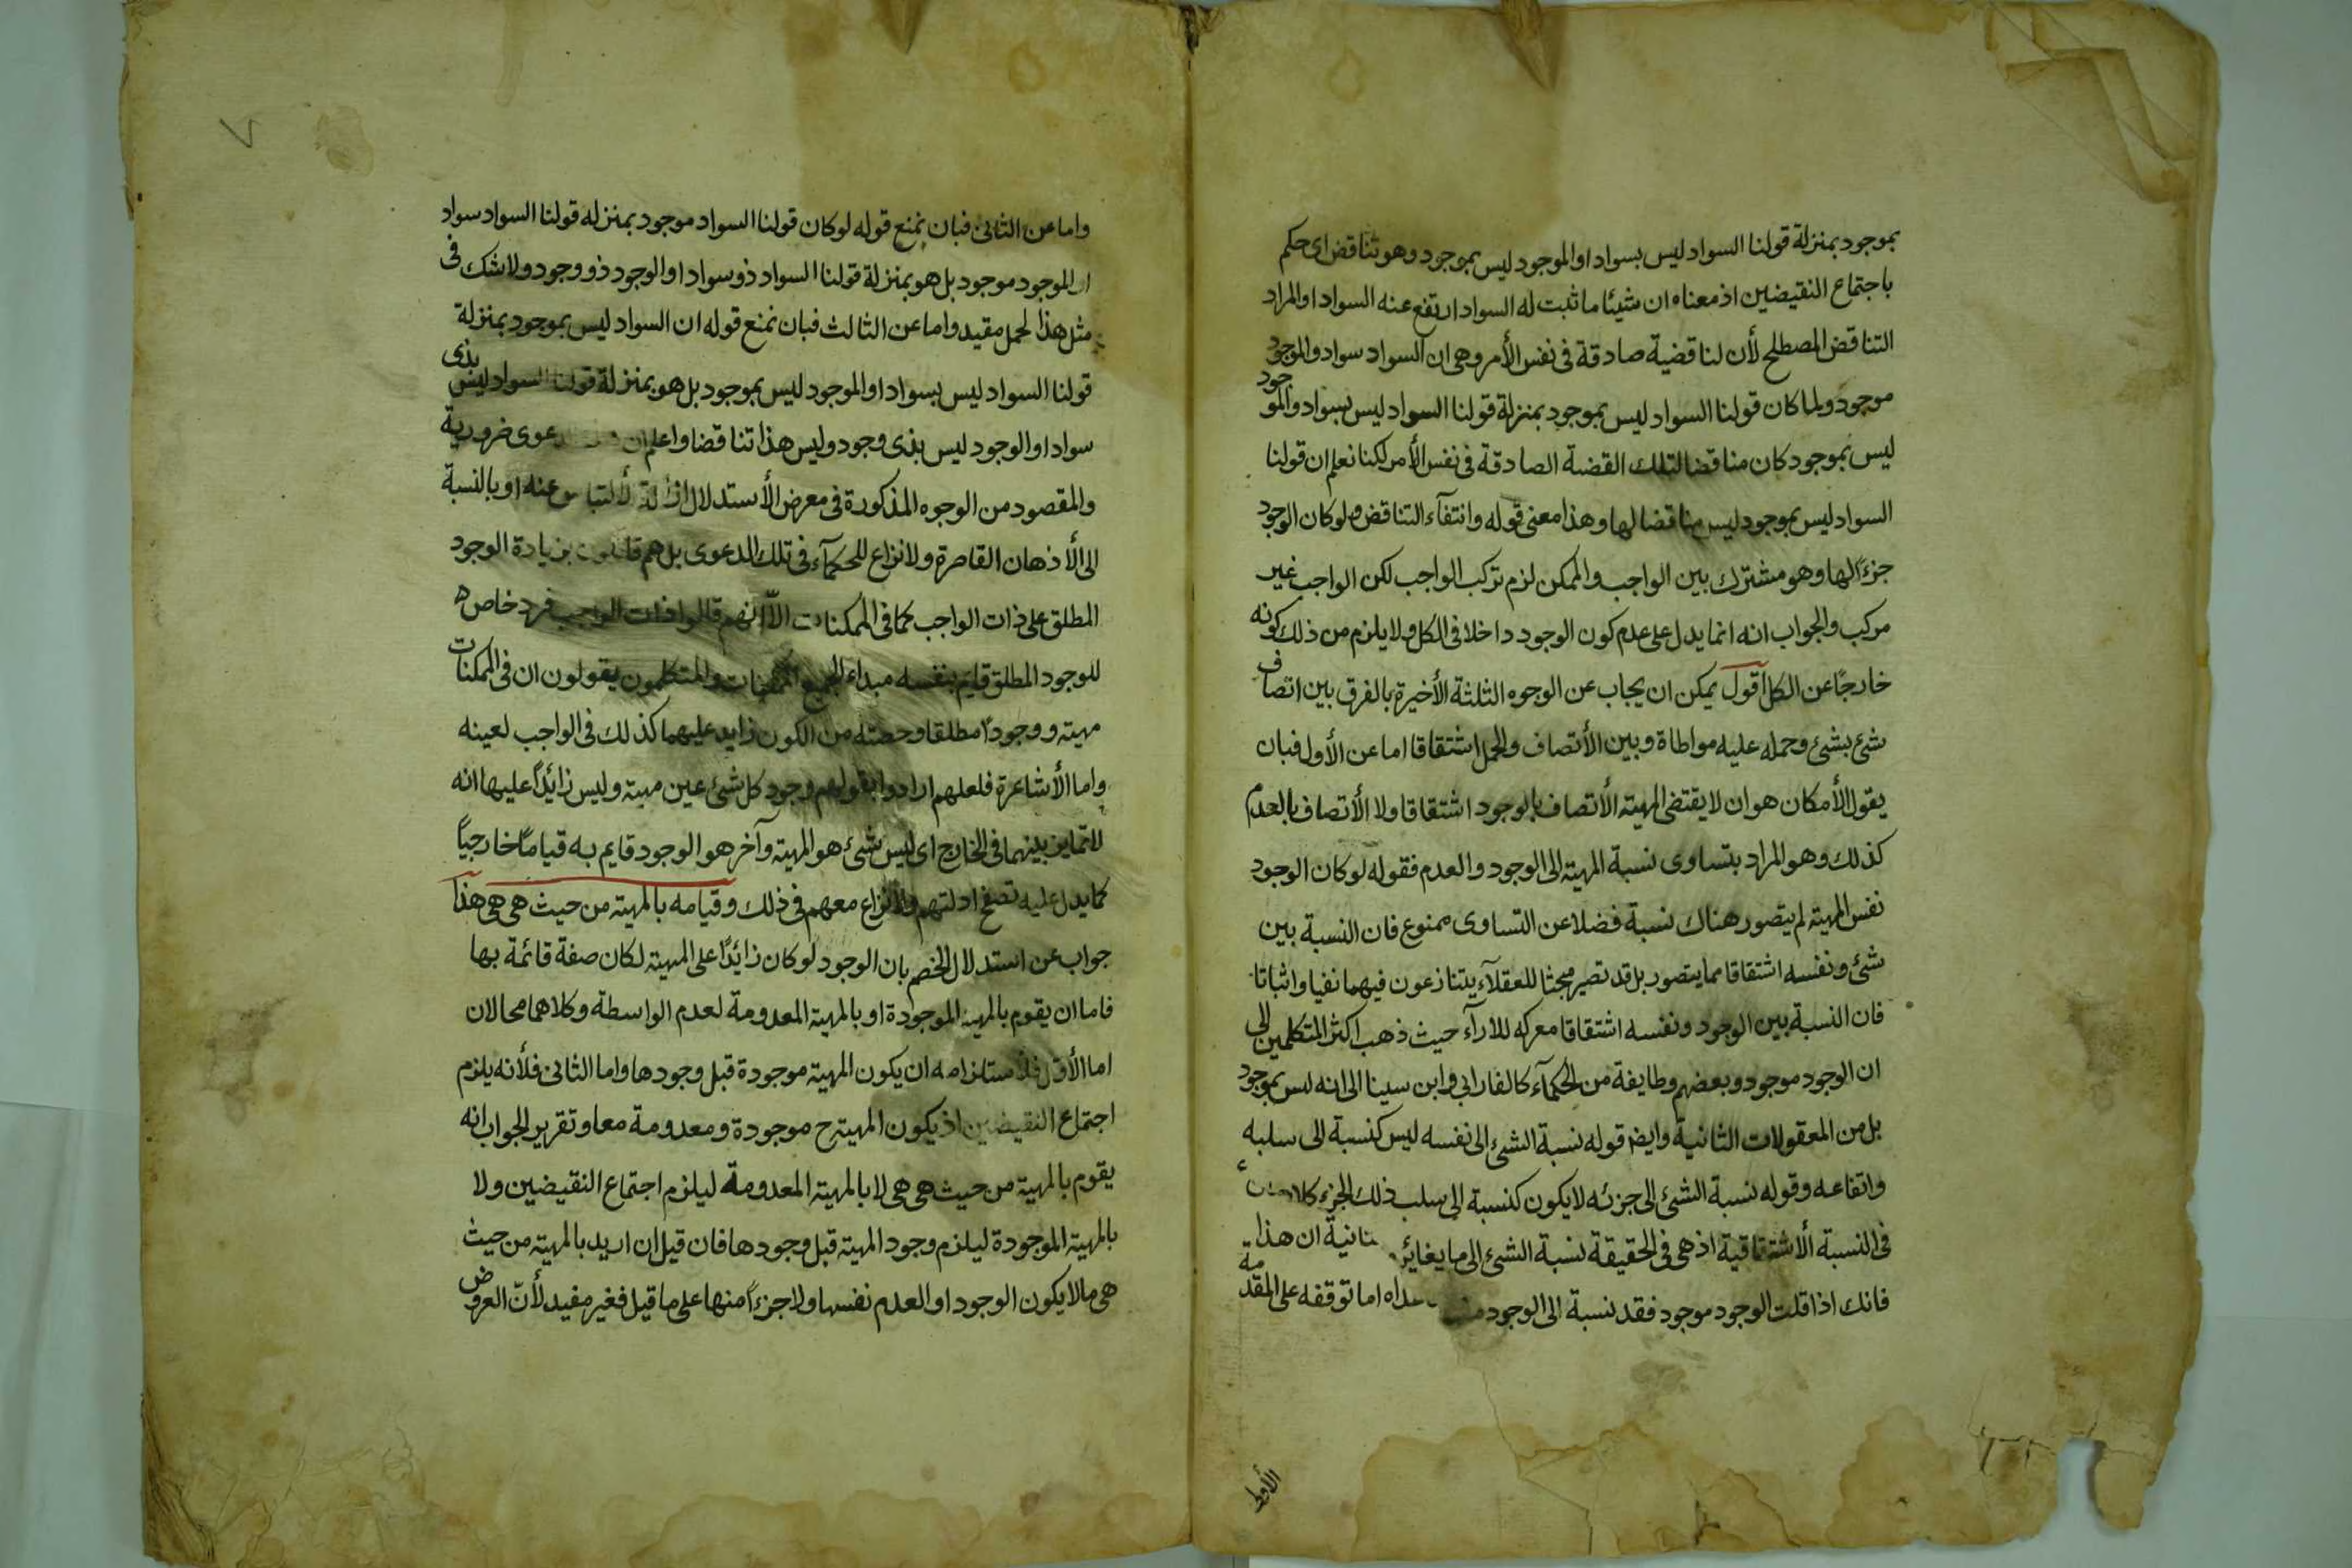 بموجود بمنزلة قولنا السواد ليس بسواد او الموجود ليس بموجود وهو تناقض اى حكم
باجتماع النقيضين اذ معناه ان شيئا ما ثبت له السواد ارتفع عنه السواد او المراد
التناقض المصطلح لأن لنا قضية صادقة فى نفس الأمر وهى ان السواد سواد والموجود
موجود ولما كان قولنا السواد ليس بموجود بمنزلة قولنا السواد ليس بسواد والموجود
ليس بموجود كان مناقضا لتلك القضية الصادقة فى نفس الأمر لكنا نعلم ان قولنا
السواد ليس بموجود ليس مناقضا لها وهذا معنى قوله وانتفآء التناقض ولو كان الوجود
جزءًا لها وهو مشترك بين الواجب والممكن لزم تركب الواجب لكن الواجب غير
مركب والجواب انه انما يدل على عدم كون الوجود داخلا فى الكل ولا يلزم من ذلك كونه
خارجًا عن الكل اقول يمكن ان يجاب عن الوجوه الثلثة الأخيرة بالفرق بين اتصاف
شئ بشئ وحمله عليه مواطاة وبين الأتصاف والحمل اشتقاقا اما عن الأول فبان
يقول الأمكان هو ان لا يقتضى المهية الأتصاف بالوجود اشتقاقا ولا الأتصاف بالعدم
كذلك وهو المراد بتساوى نسبة المهية الى الوجود والعدم فقوله لو كان الوجود
نفس المهية لم يتصور هناك نسبة فضلا عن التساوى ممنوع فان النسبة بين
شئ ونفسه اشتقاقا مما يتصور بل قد تصير مبحثا للعقلآء يتنازعون فيهما نفيا واثباتا
فان النسبة بين الوجود ونفسه اشتقاقا معركه للارآء حيث ذهب اكثر المتكلمين الى
ان الوجود موجود وبعضهم وطايفة من الحكمآء كالفارابى وابن سينا الى انه ليس بموجود
بل من المعقولات الثانية وايضا قوله نسبة الشئ الى نفسه ليس كنسبة الى سلبه
واتفاعه وقوله نسبة الشئ الى جزئه لا يكون كنسبة الى سلب ذلك الجزء
فى النسبة الأشتقاقية اذ هى فى الحقيقة نسبة الشئ الى ما يغايره ان هذا
فانك اذا قلت الوجود موجود فقد نسبة الى الوجود اما توقفه على المقدمة
الأولى
٧
واما عن الثانى فبان نمنع قوله لو كان قولنا السواد موجود بمنزله قولنا السواد سواد
او الموجود موجود بل هو بمنزلة قولنا السواد ذو سواد او الوجود ذو وجود ولا شك فى
مثل هذا الحمل مقيد واما عن الثالث فبان نمنع قوله ان السواد ليس بموجود بمنزلة
قولنا السواد ليس بسواد او الموجود ليس بموجود بل هو بمنزلة قولنا السواد ليس بذى
سواد او الوجود ليس بذى وجود وليس هذا تناقضا واعلم ان دعوى ضرورية
والمقصود من الوجوه المذكورة فى معرض الأستدلال ازالة لألتباس عنه او بالنسبة
الى الأذهان القاصرة ولا نزاع للحكمآء فى تلك الدعوى بل هم قائلون بزيادة الوجود
المطلق على ذات الواجب كما فى الممكنات الّا انهم قالوا ذات الواجب فرد خاص
للوجود المطلق قايم بنفسه مبداء لجميع الممكنات والمتكلمون يقولون ان فى الممكنات
مهية ووجودًا مطلقا وحصته من الكون زايد عليهما كذلك فى الواجب لعينه
واما الأشاعرة فلعلهم ارادوا بقولهم وجود كل شئ عين مهية وليس زائدًا عليها انه
لا تمايز بينهما فى الخارج اى ليس شئ هو المهية وآخر هو الوجود قايم به قيامًا خارجيًا
كما يدل عليه تصفح ادلتهم ولا نزاع معهم فى ذلك وقيامه بالمهية من حيث هى هى هذا
جواب عن استدلال الخصم بان الوجود لو كان زائدًا على المهية لكان صفة قائمة بها
فاما ان يقوم بالمهية الموجودة او بالمهية المعدومة لعدم الواسطة وكلاهما محالان
اما الأول فلأستلزامه ان يكون المهية موجودة قبل وجودها واما الثانى فلأنه يلزم
اجتماع النقيضين اذ يكون المهية ح موجودة ومعدومة معا وتقرير الجواب انه
يقوم بالمهية من حيث هى هى لا بالمهية المعدومة ليلزم اجتماع النقيضين ولا
بالمهية الموجودة ليلزم وجود المهية قبل وجودها فان قيل ان اريد بالمهية من حيث
هى ما لا يكون الوجود او العدم نفسها ولا جزءًا منها على ما قيل فغير مفيد لأنّ العروض